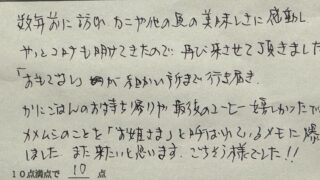 数年前に訪れ カニや他の魚の美味しさに感動し
やっとコロナも明けてきたので 再び来させて頂きました
「おもてなし」が 細かい所まで行き届き、
かにごはんのお持ち帰りや 最後のコーヒー 嬉しかったで
カメムシのことを「お姫さま」と呼ばれているメモに爆
しました また来たいと思います。ごちそう様でした!!
10点満点で 10 点